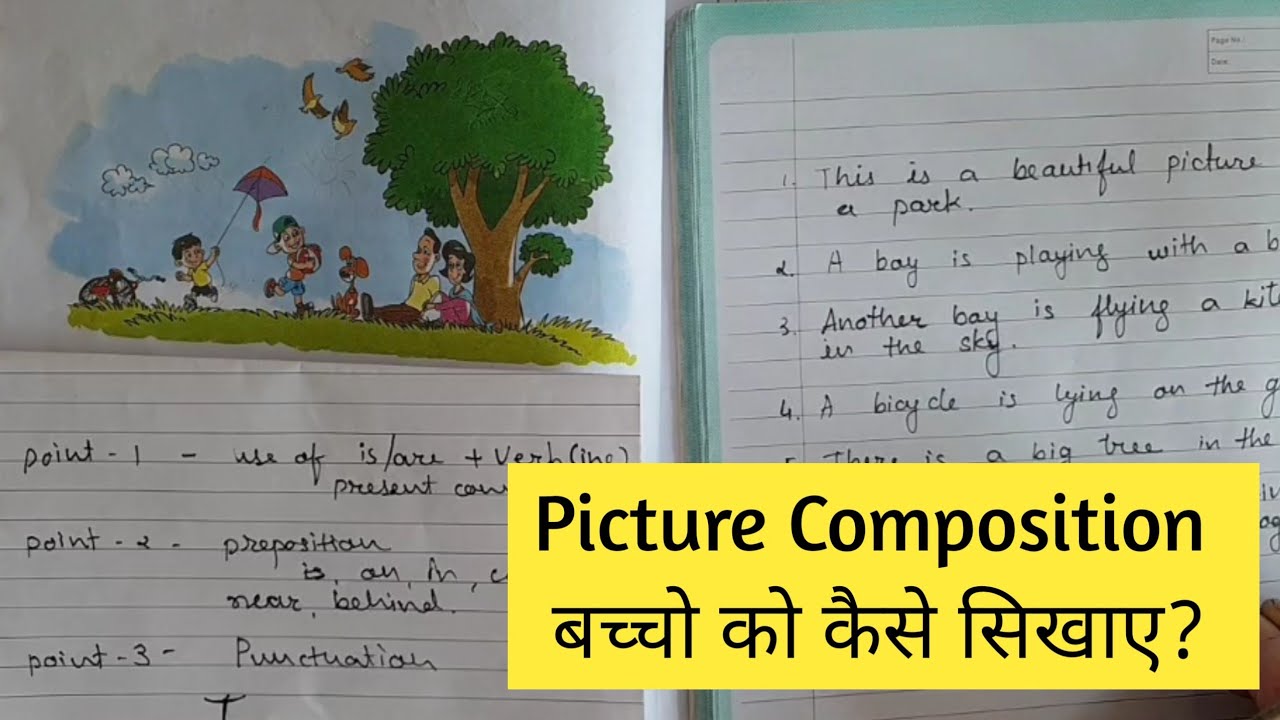 Page No.:
Date:
1. This is a beautiful picture
a park.
2. A boy is playing with a
3. Another boy is flying a
in the sky.
4. A bicycle is lying on the
There is a big tree in the
point - 1 - use of is/are + Verb(ing)
present
point - 2 - preposition
is, on, in,
near, behind.
point - 3 - Punctuation
Picture Composition
बच्चो को कैसे सिखाए?